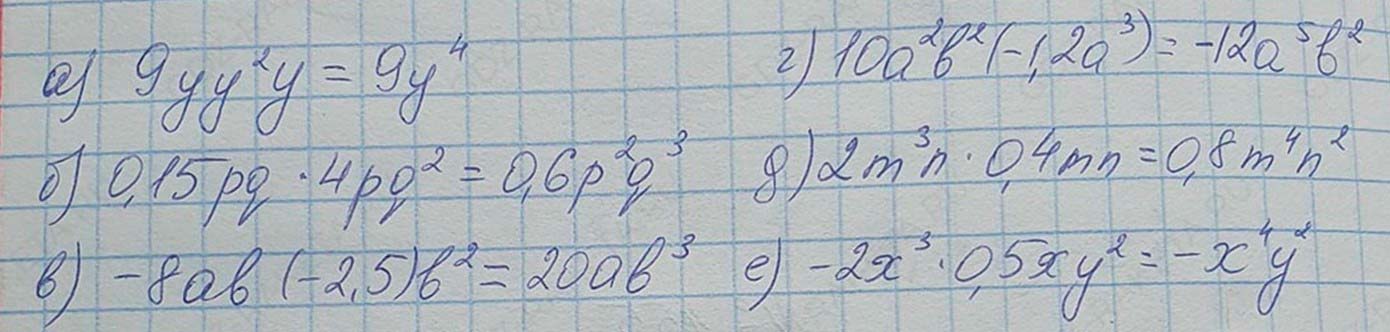 а) 9yy²y = 9y⁴
б) 0,15pq · 4pq² = 0,6p²q³
в) -8ab (-2,5)b² = 20ab³
г) 10a²b² (-1,2a³) = -12a⁵b²
д) 2m³n · 0,4mn = 0,8m⁴n²
е) -2x³ · 0,5xy² = -x⁴y²